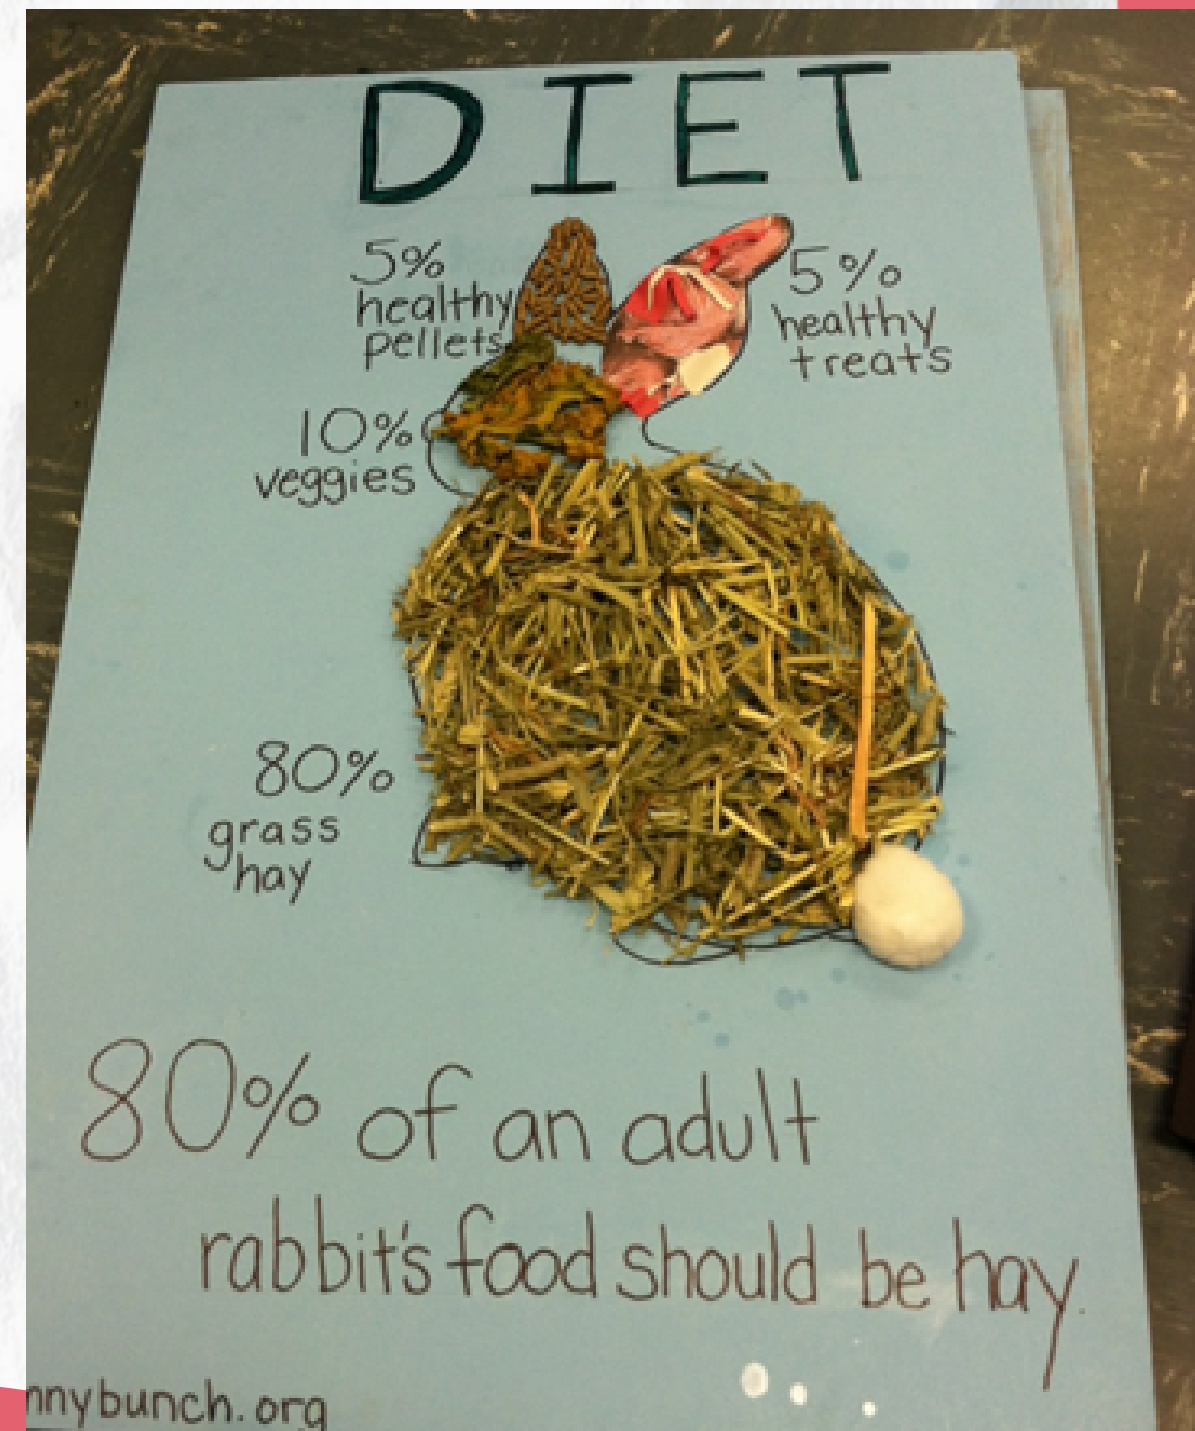 DIET
5%
healthy
pellets
5%
healthy
treats
10%
veggies
80%
grass
hay
80% of an adult
rabbit's food should be hay.
nnybunch.org